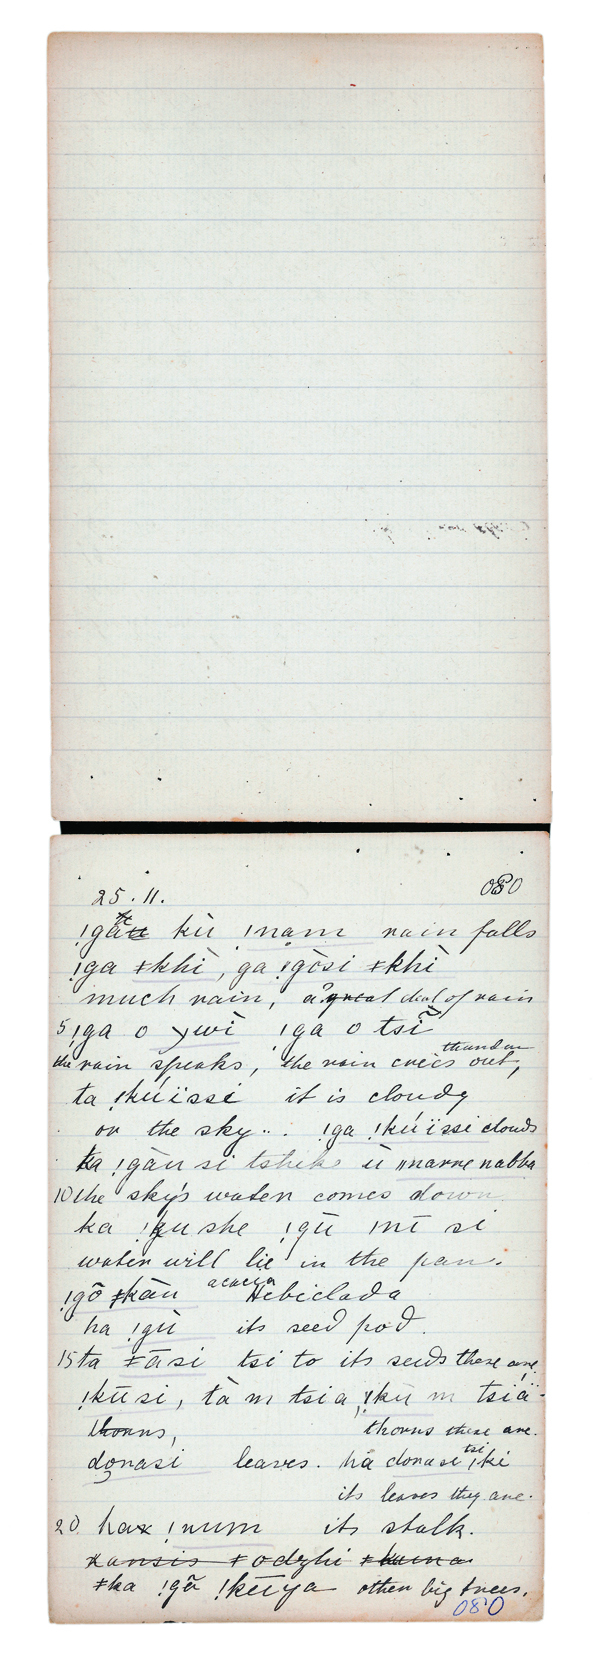 25.11. 080
ǃgāu kù ǀnam rain falls
ǃga ǂkhì, ga ǃgòsi ǂkhì
much rain, a great deal of rain
5 ǃga o ywì ǃga o tsĩ
the rain speaks, the rain cries out, thunder
ta ǃkúïssi it is cloudy
or the sky... ǃga ǃkúïssi clouds
ka ǃgāu si tshike ù ǁnarre nabba
10 the sky's water comes down
ka ǃgu she ǃgū ǀnī si
water will lie in the pan.
ǃgō ǂkāu acacia Hebiclada
ha ǃgù its seed pod.
15 ta ǂāsi tsi to its seeds these are
ǃkūsi, tà m tsia, ǃkū m tsïä
thorns, thorns these are.
donasi leaves. hà donasi tsi ǃki
its leaves they are.
20 hax ǃnum its stalk.
xansis ǂodzhi ǂkuma
ǂka ǃgã ǃkūya other big trees.
080